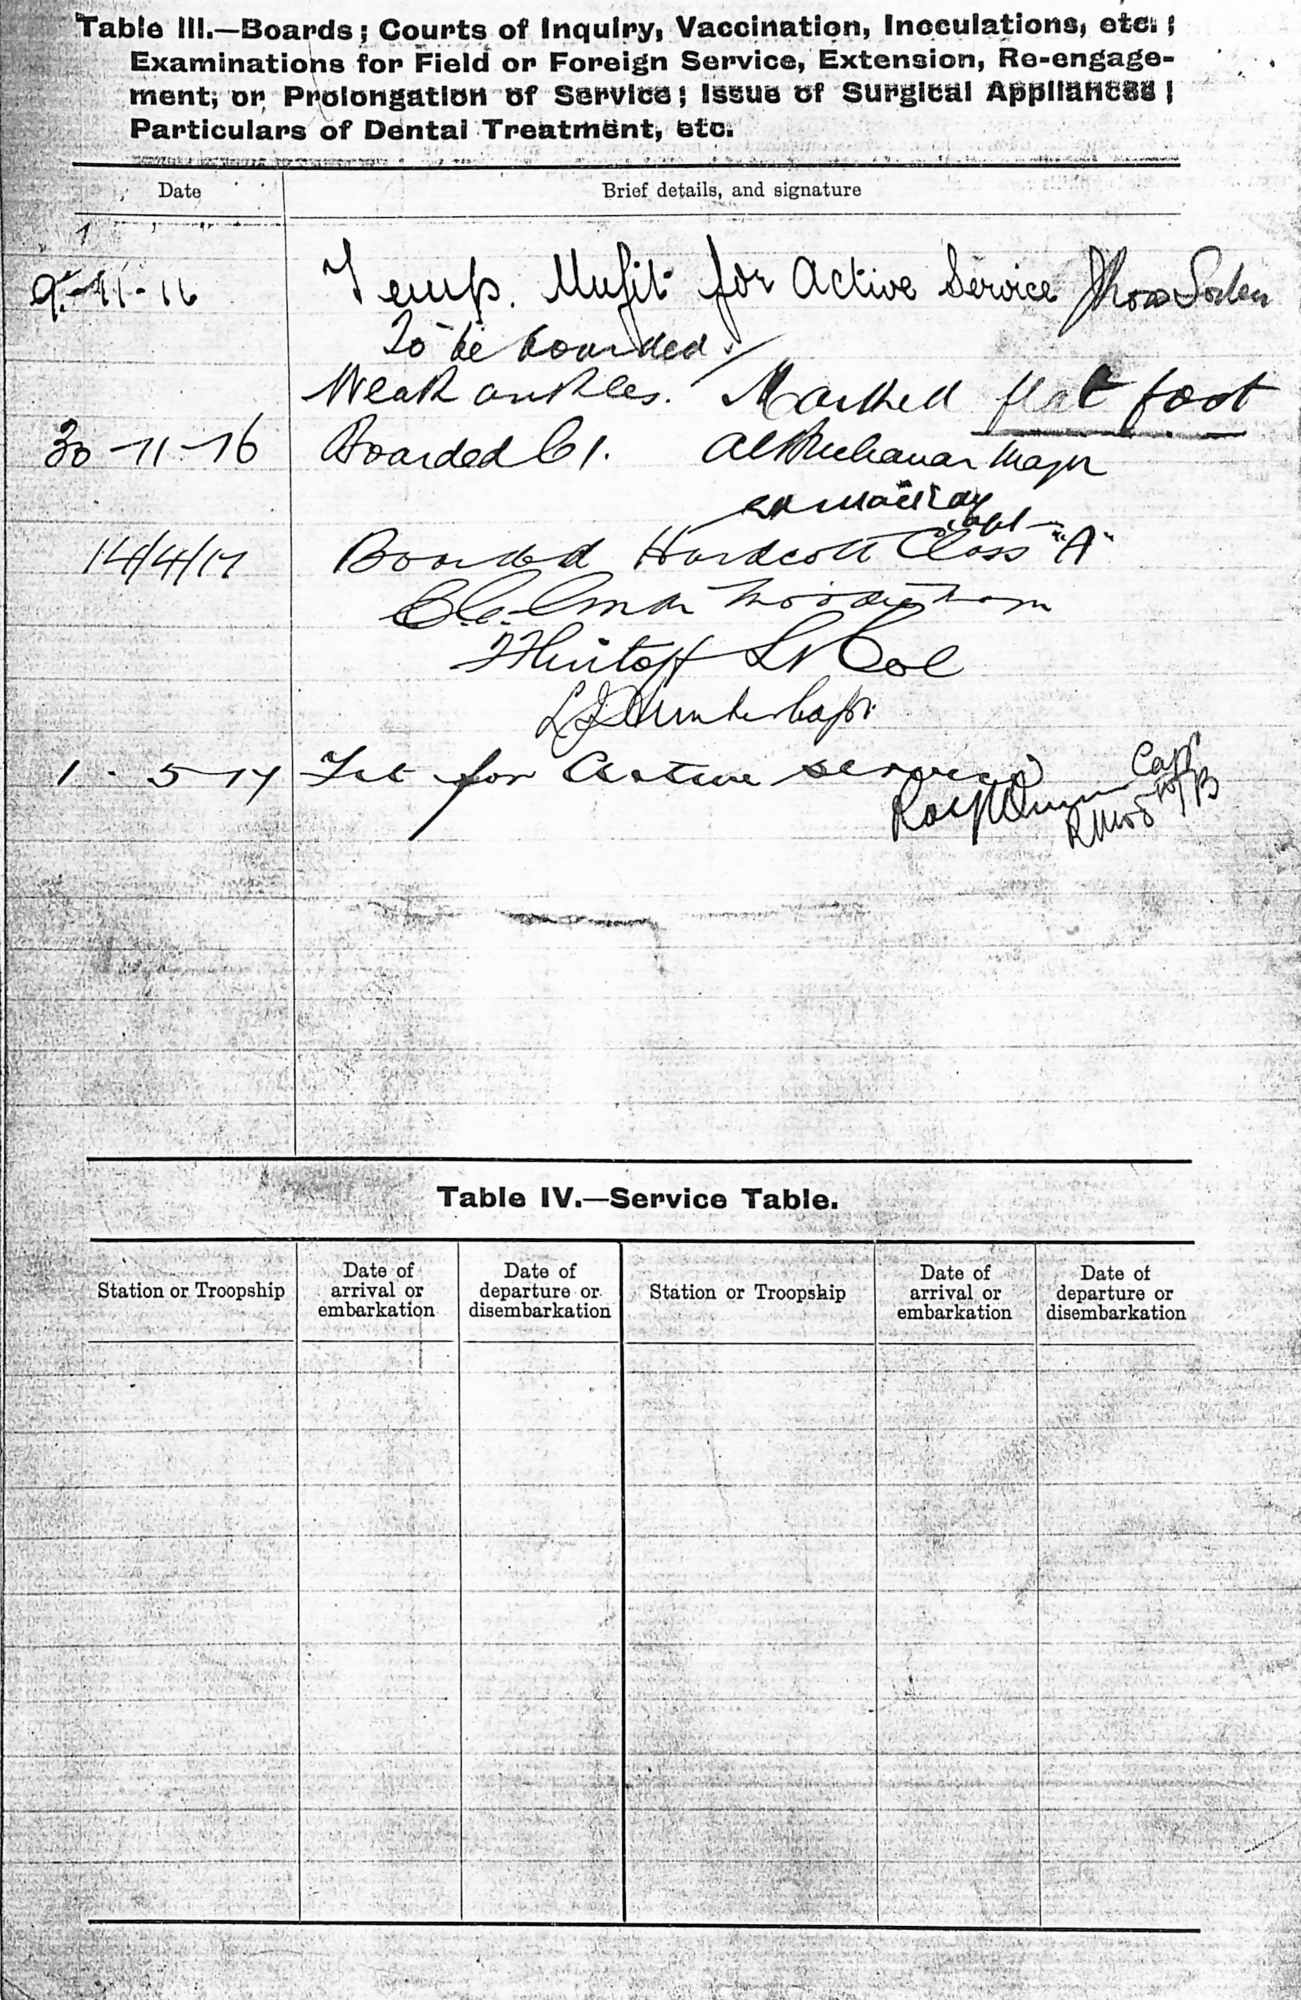 Table III.—Boards; Courts of Inquiry, Vaccination, Inoculations, etc.;
Examinations for Field or Foreign Service, Extension, Re-engage-
ment; or Prolongation of Service; Issue of Surgical Appliances;
Particulars of Dental Treatment, etc.
Date Brief details, and signature
9-11-16 Temp. Unfit for Active Service
To be boarded.
Weak ankles. Marked flat foot
30-11-16 Boarded C1. Buchanan Major
Capt
14/4/17 Boarded Hurdcott Class "A"
Lt Col
Capt.
1-5-17 Fit for Active service
Capt
RMO
Table IV.—Service Table.
Station or Troopship Date of arrival or embarkation Date of departure or disembarkation Station or Troopship Date of arrival or embarkation Date of departure or disembarkation